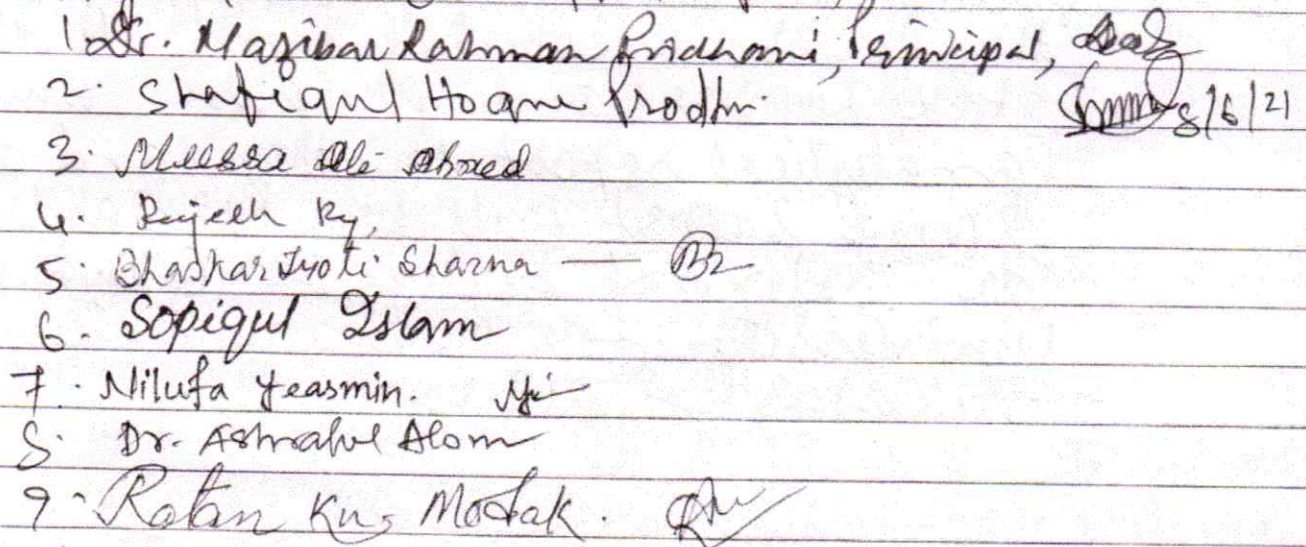 1. Dr. Mazibar Rahman Pradhani, Principal,
2. Shafiqul Hoque Prodhan. 8/6/21
3. Mussa Ali Ahmed
4. Ry,
5. Bhaskar Jyoti Sharma —
6. Sopiqul Islam
7. Nilufa Yeasmin.
8. Dr. Ashraful Alom
9. Ratan Kr. Modak.